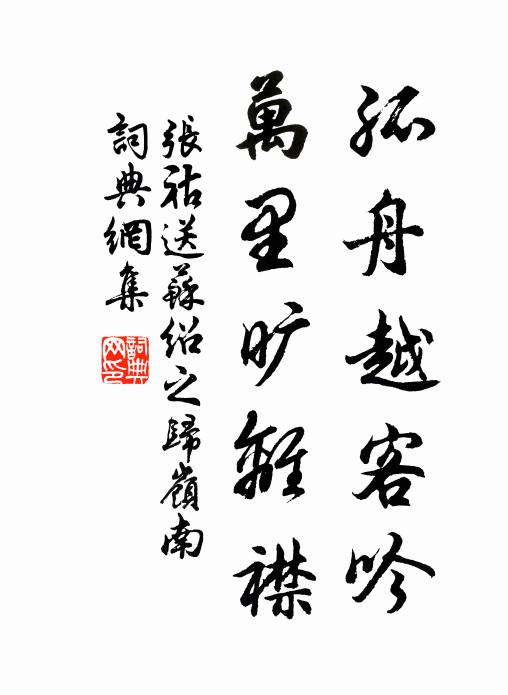 孤舟越客吟
萬里旷離襟
張祜送蘇紹之歸嶺南
詞典網集
詞典
网印